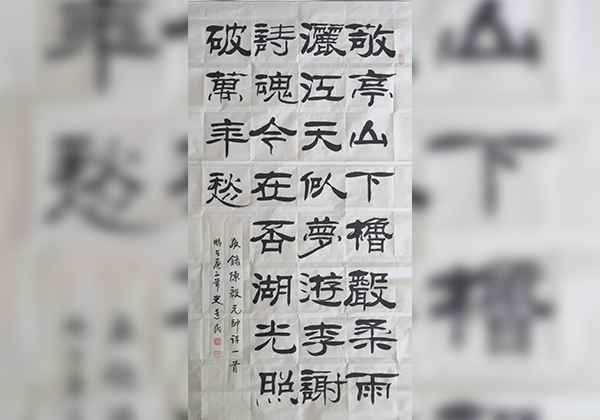 敬亭山下櫓聲柔雨
灑江天似夢游李謝
詩魂今在否湖光照
破萬年愁
敬錄陳毅元帥詩一首